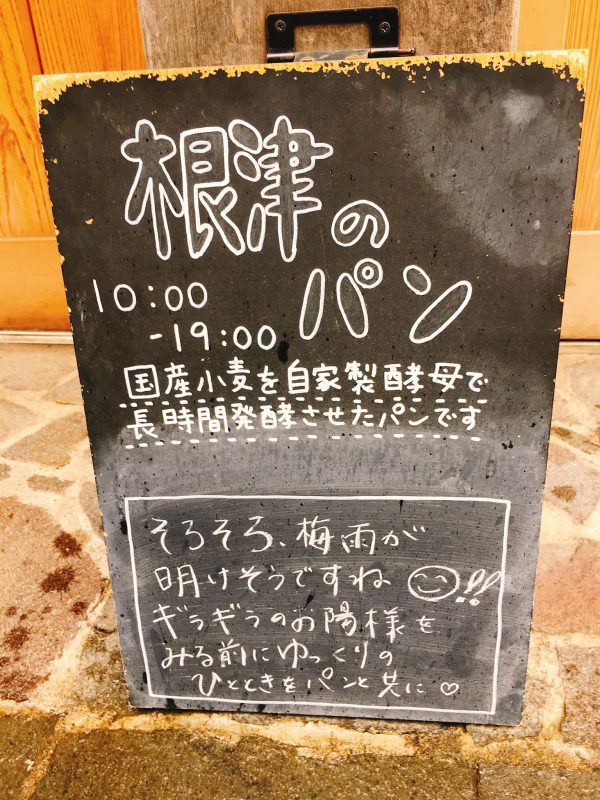 根津の
パン
10:00
-19:00
国産小麦を自家製酵母で
長時間発酵させたパンです
そろそろ、梅雨が
明けそうですね😊!!
ギラギラのお陽様を
みる前にゆっくりの
ひとときをパンと共に♡